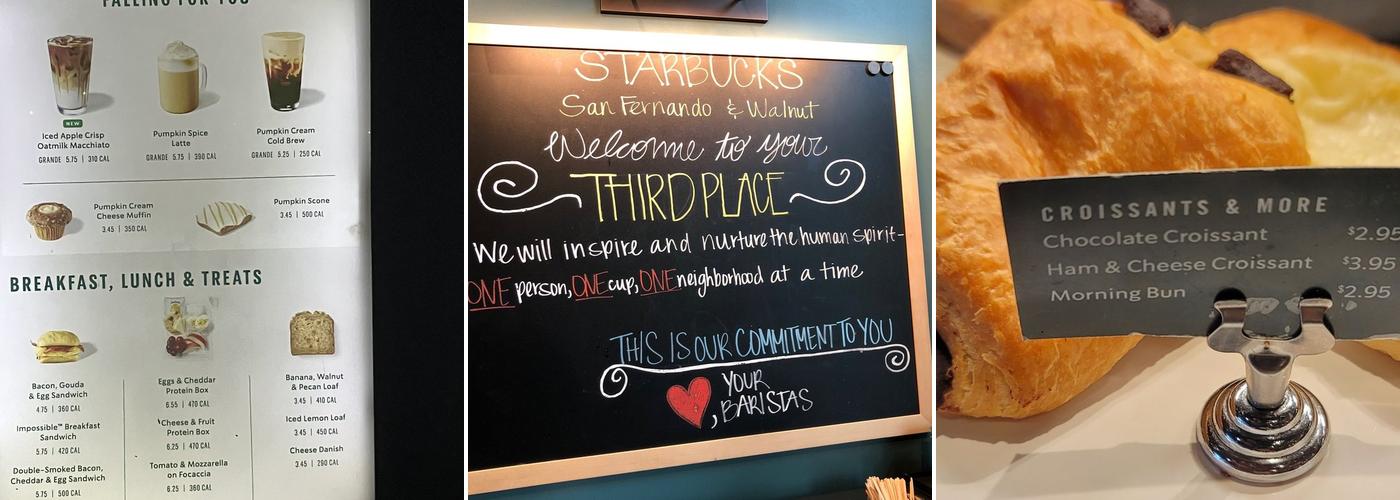 FALLING FOR YOU
NEW
Iced Apple Crisp
Oatmilk Macchiato
GRANDE 5.75 | 310 CAL
Pumpkin Spice
Latte
GRANDE 5.75 | 390 CAL
Pumpkin Cream
Cold Brew
GRANDE 5.25 | 250 CAL
Pumpkin Cream
Cheese Muffin
3.45 | 350 CAL
Pumpkin Scone
3.45 | 500 CAL
BREAKFAST, LUNCH & TREATS
Bacon, Gouda
& Egg Sandwich
4.75 | 360 CAL
Impossible™ Breakfast
Sandwich
5.75 | 420 CAL
Double-Smoked Bacon,
Cheddar & Egg Sandwich
5.75 | 500 CAL
Eggs & Cheddar
Protein Box
6.55 | 470 CAL
Cheese & Fruit
Protein Box
6.25 | 470 CAL
Tomato & Mozzarella
on Focaccia
6.25 | 360 CAL
Banana, Walnut
& Pecan Loaf
3.45 | 410 CAL
Iced Lemon Loaf
3.45 | 450 CAL
Cheese Danish
3.45 | 290 CAL
STARBUCKS
San Fernando & Walnut
Welcome to your
THIRD PLACE
We will inspire and nurture the human spirit-
ONE person, ONE cup, ONE neighborhood at a time
THIS IS OUR COMMITMENT TO YOU
, YOUR
BARISTAS
CROISSANTS & MORE
Chocolate Croissant $2.95
Ham & Cheese Croissant $3.95
Morning Bun $2.95